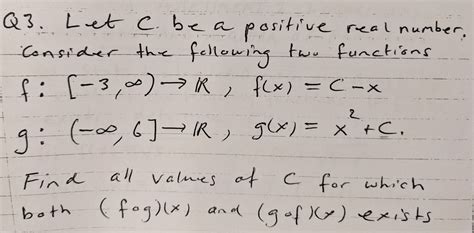 Q3. Let C be a positive real number.
Consider the following two functions
f: [-3,∞) → ℝ, f(x) = C-x
g: (-∞, 6] → ℝ, g(x) = x² + C.
Find all values of C for which
both (fog)(x) and (gof)(x) exists